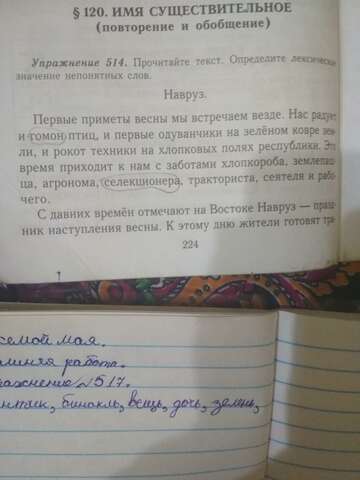 § 120. ИМЯ СУЩЕСТВИТЕЛЬНОЕ
(повторение и обобщение)
Упражнение 514. Прочитайте текст. Определите лексическое
значение непонятных слов.
Навруз.
Первые приметы весны мы встречаем везде. Нас радует
и гомон птиц, и первые одуванчики на зелёном ковре зем-
ли, и рокот техники на хлопковых полях республики. Это
время приходит к нам с заботами хлопкороба, землепаш-
ца, агронома, селекционера, тракториста, сеятеля и рабо-
чего.
С давних времён отмечают на Востоке Навруз — празд-
ник наступления весны. К этому дню жители готовят тра-
224
седьмой мая.
работа.
517.
бинокль, вещь, дочь, зелень,